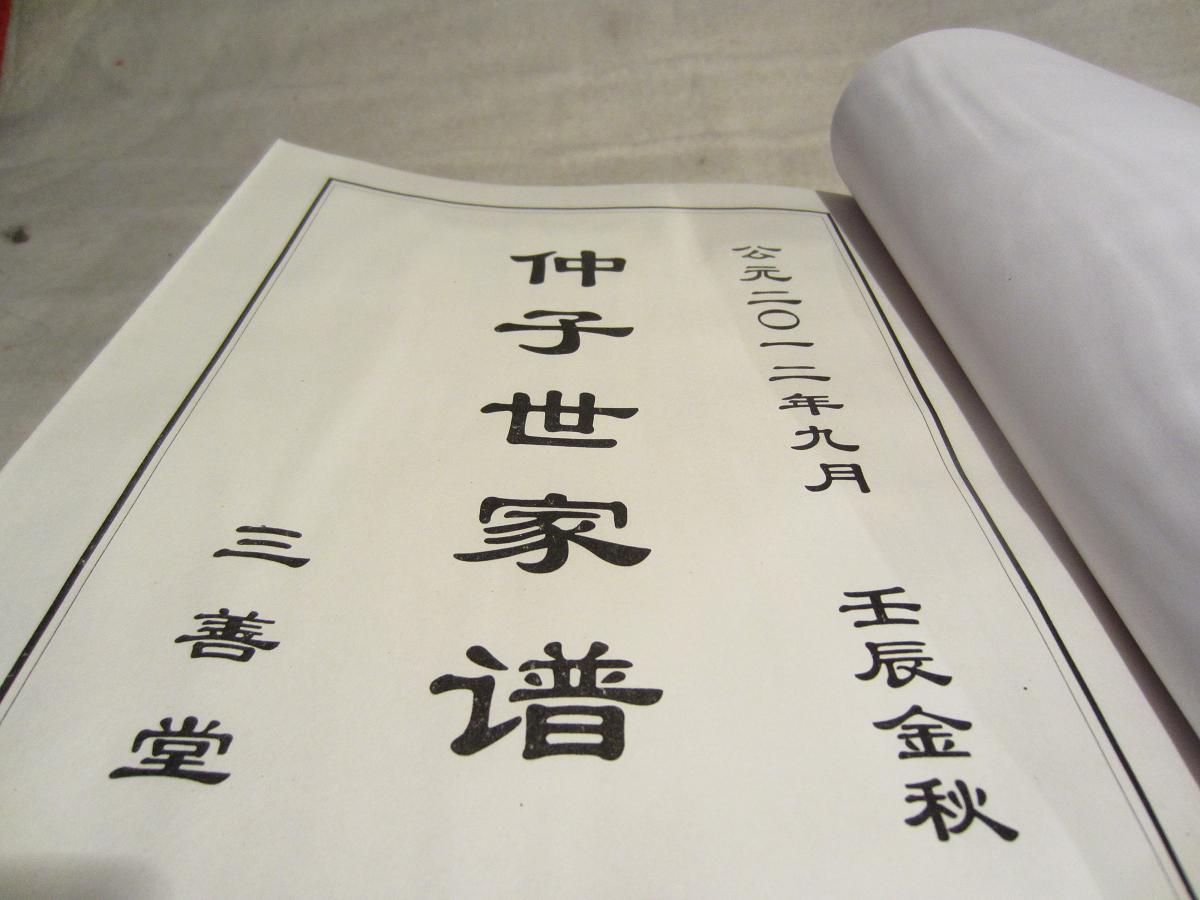 公元二〇一二年九月 壬辰金秋
仲子世家谱
三善堂